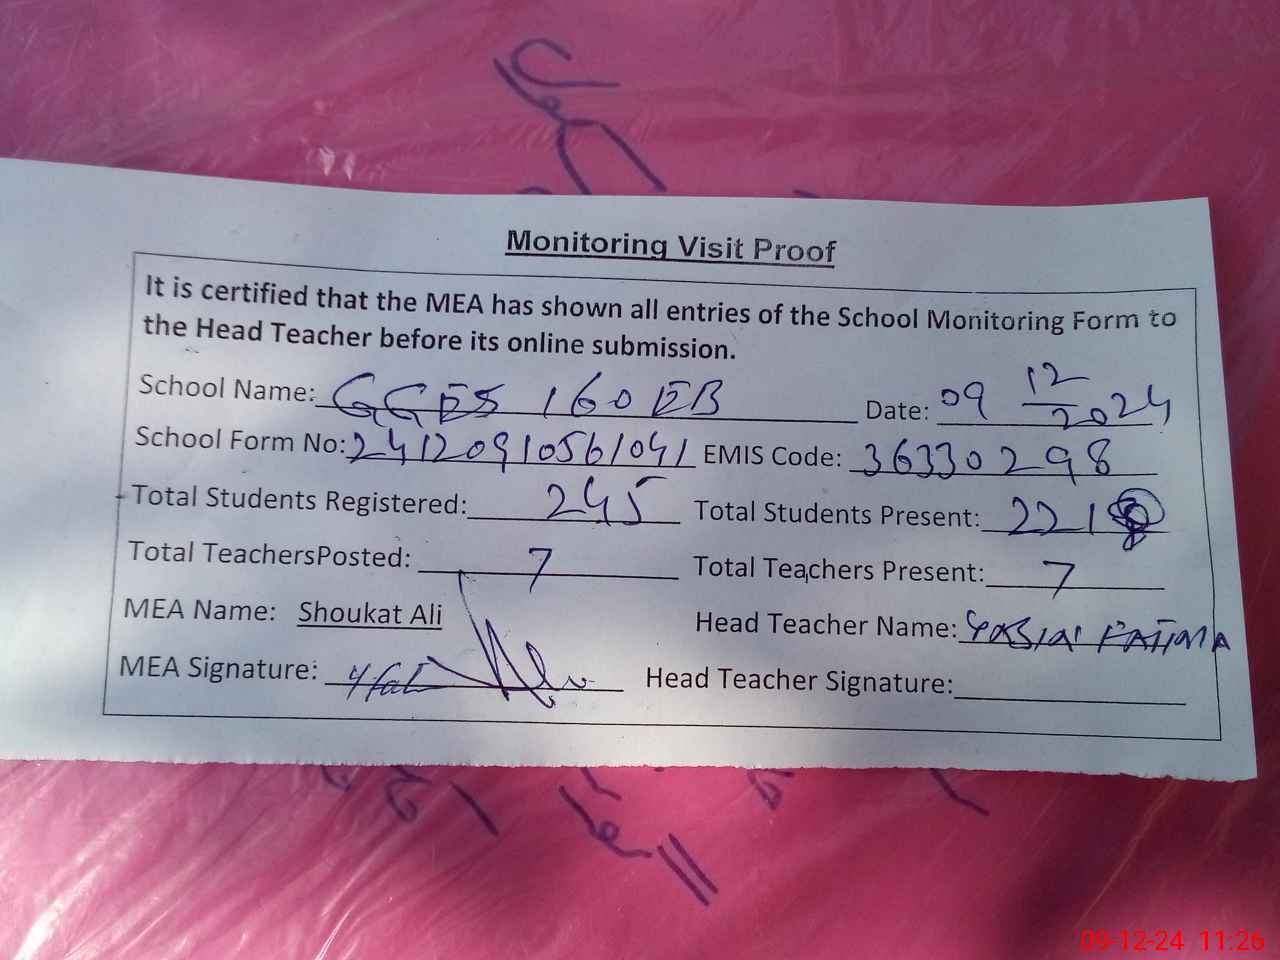 Monitoring Visit Proof
It is certified that the MEA has shown all entries of the School Monitoring Form to
the Head Teacher before its online submission.
School Name: GGES 160 EB Date: 09 12 2024
School Form No: 24120910561041 EMIS Code: 36330298
Total Students Registered: 245 Total Students Present: 221
Total TeachersPosted: 7 Total Teachers Present: 7
MEA Name: Shoukat Ali Head Teacher Name: FATIMA
MEA Signature: Head Teacher Signature:
09-12-24 11:26